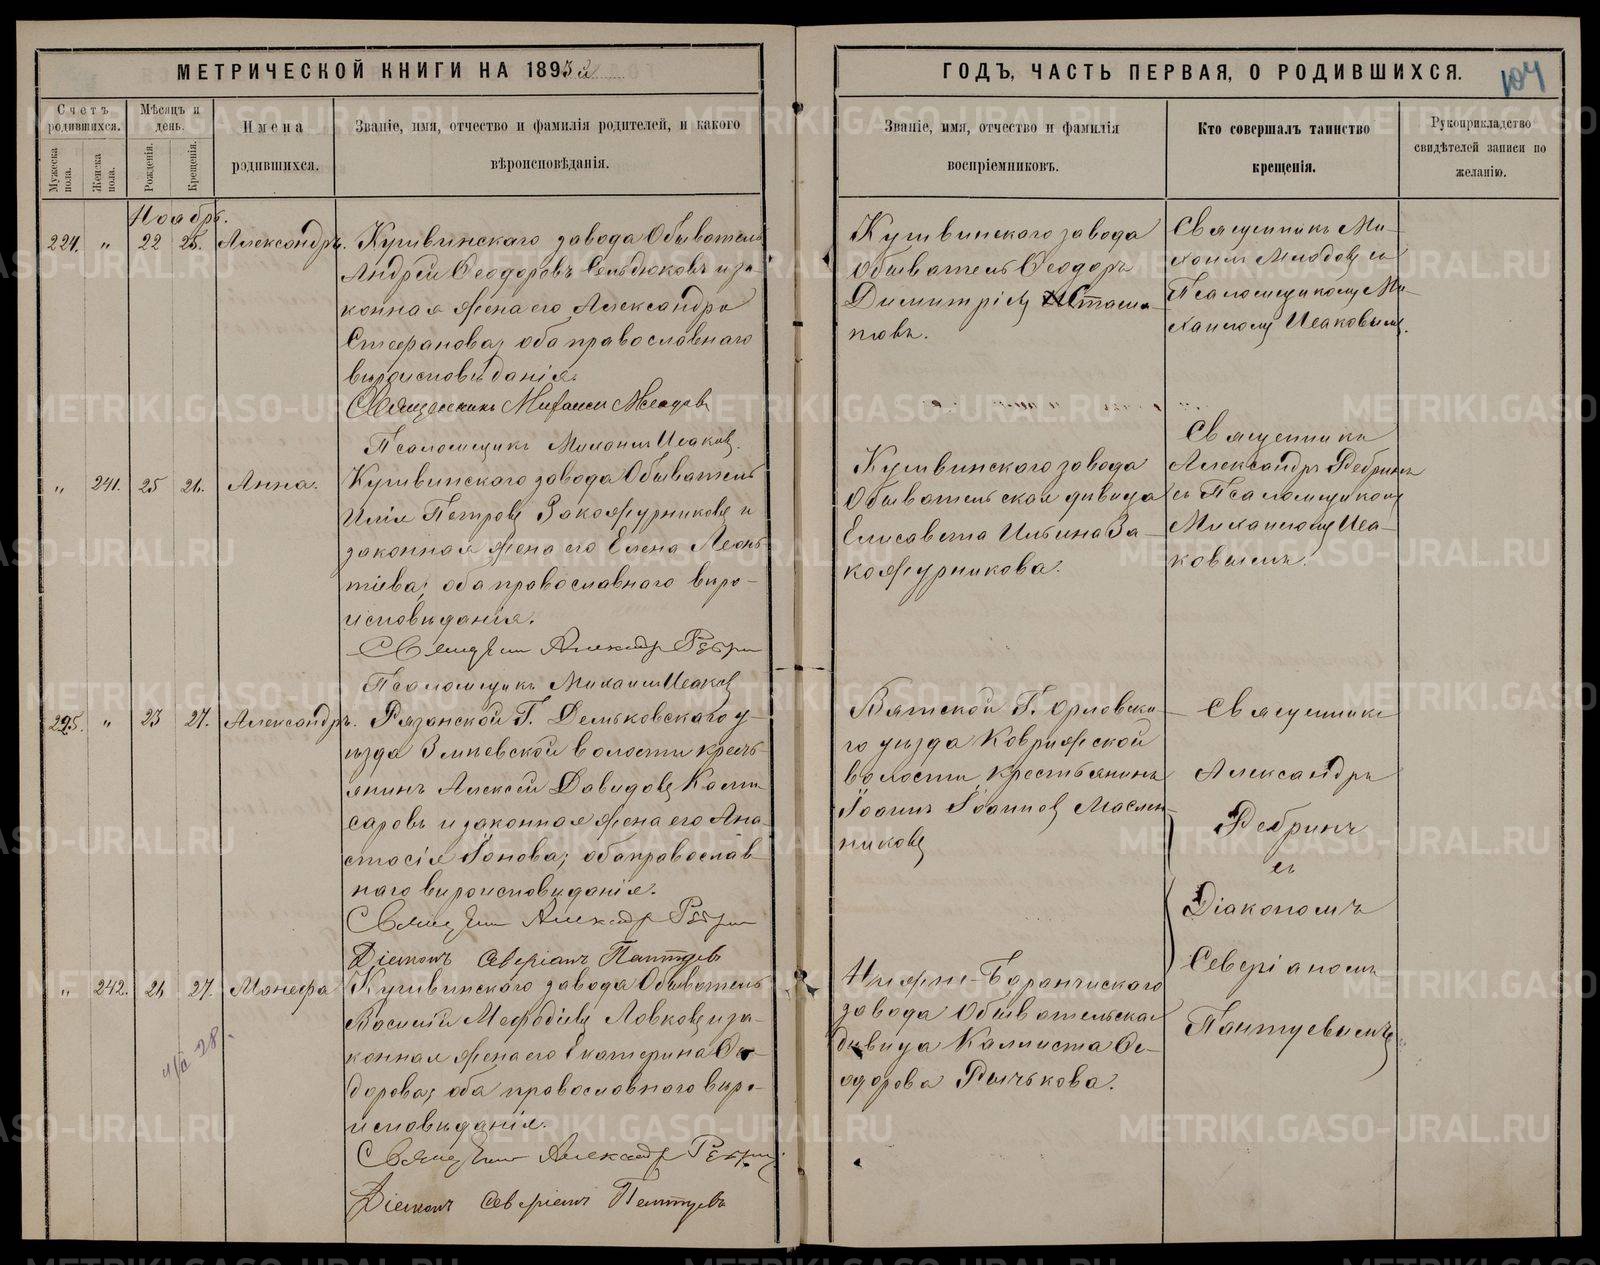 МЕТРИЧЕСКОЙ КНИГИ НА 189
ГОДЪ, ЧАСТЬ ПЕРВАЯ, О РОДИВШИХСЯ.
104
Счетъ родившихся.
Мужеска пола.
Женска пола.
Мѣсяцъ и день.
Рожденія.
Крещенія.
Имена
родившихся.
Званіе, имя, отчество и фамилія родителей, и какого
вѣроисповѣданія.
Званіе, имя, отчество и фамилія
воспріемниковъ.
Кто совершалъ таинство
крещенія.
Рукоприкладство
свидѣтелей записи по
желанію.
Ноябрь.
224. " 22 25. Александръ.
Кушвинскаго завода Обыватель
Андрей Ѳеодоровъ Сельдюковъ и за-
конная жена его Александра
Стефанова; оба православнаго
вѣроисповѣданія.
Священникъ Михаилъ
Псаломщикъ Михаилъ Исаковъ.
Кушвинскаго завода
Обыватель Ѳеодоръ
Димитріевъ
повъ.
Священникъ Ми-
хаилъ съ
Псаломщикомъ Ми-
хаиломъ Исаковымъ.
" 241. 25 26. Анна.
Кушвинскаго завода Обыватель
Илія Петровъ Закожурниковъ и
законная жена его Елена Леон-
тіева; оба православнаго вѣро-
исповѣданія.
Священникъ Александръ Ребринъ
Псаломщикъ Михаилъ Исаковъ
Кушвинскаго завода
Обывательская дѣвица
Елисавета Ильина За-
кожурникова.
Священникъ
Александръ Ребринъ
съ Псаломщикомъ
Михаиломъ Иса-
ковымъ.
225. " 23 27. Александръ.
Рязанской Г. уѣ-
зда волости кресть-
янинъ Алексѣй Давидовъ Коми-
саровъ и законная жена его Ана-
стасія Іонова; оба православ-
наго вѣроисповѣданія.
Священникъ Александръ Ребринъ
Діаконъ Северіанъ Пантуевъ
Вятской Г. Орловска-
го уѣзда Коврижской
волости крестьянинъ
Іоаннъ Іоанновъ Маслен-
никовъ
Священникъ
Александръ
Ребринъ
съ
Діакономъ
Северіаномъ
Пантуевымъ
" 242. 26 27. Манефа
Кушвинскаго завода Обыватель
Василій Меѳодіевъ Ловковъ и за-
конная жена его Екатерина Ѳе-
дорова; оба православнаго вѣро-
исповѣданія.
Священникъ Александръ Ребринъ
Діаконъ Северіанъ Пантуевъ
Нижне-Баранчискаго
завода Обывательская
дѣвица Каллиста Ѳе-
одорова Рычькова.
28.
METRIKI.GASO-URAL.RU